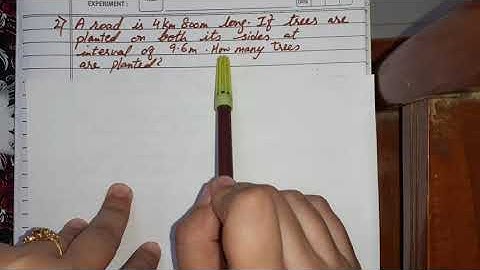 EXPERIMENT :
DATE :
2) A road is 4km 800m long. If trees are
planted on both its sides at
interval of 9.6m. How many trees
are planted?